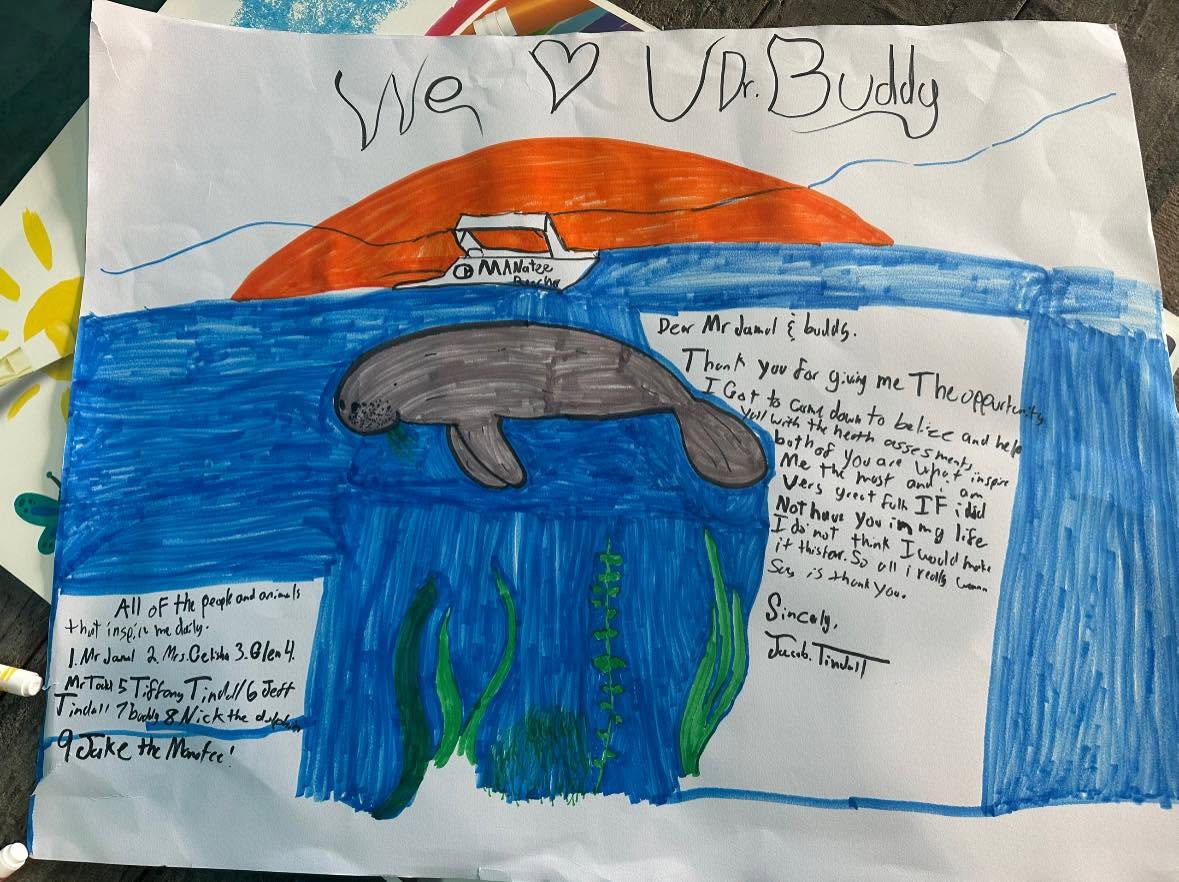 We ♡ U Dr. Buddy
MANatee
Dear Mr Jamal & buddy.
Thank you for giving me The oppurtunity
I Got to came down to belize and help
yall with the heath assesments.
both of you are what inspire
Me the most and i am
Very great full. IF i did
Not have you in my life
I do not think I would make
it this far. So all i really wanna
Say is thank you.
Sincely,
Jacob. Tindall
All oF the people and animals
that inspire me daily.
1. Mr Jamal 2. Mrs. Celisha 3. Glen 4.
Mr Todd 5 Tiffany Tindall 6 Jeff
Tindall 7 buddy 8 Nick the dolphin
9 Jake the Manatee!